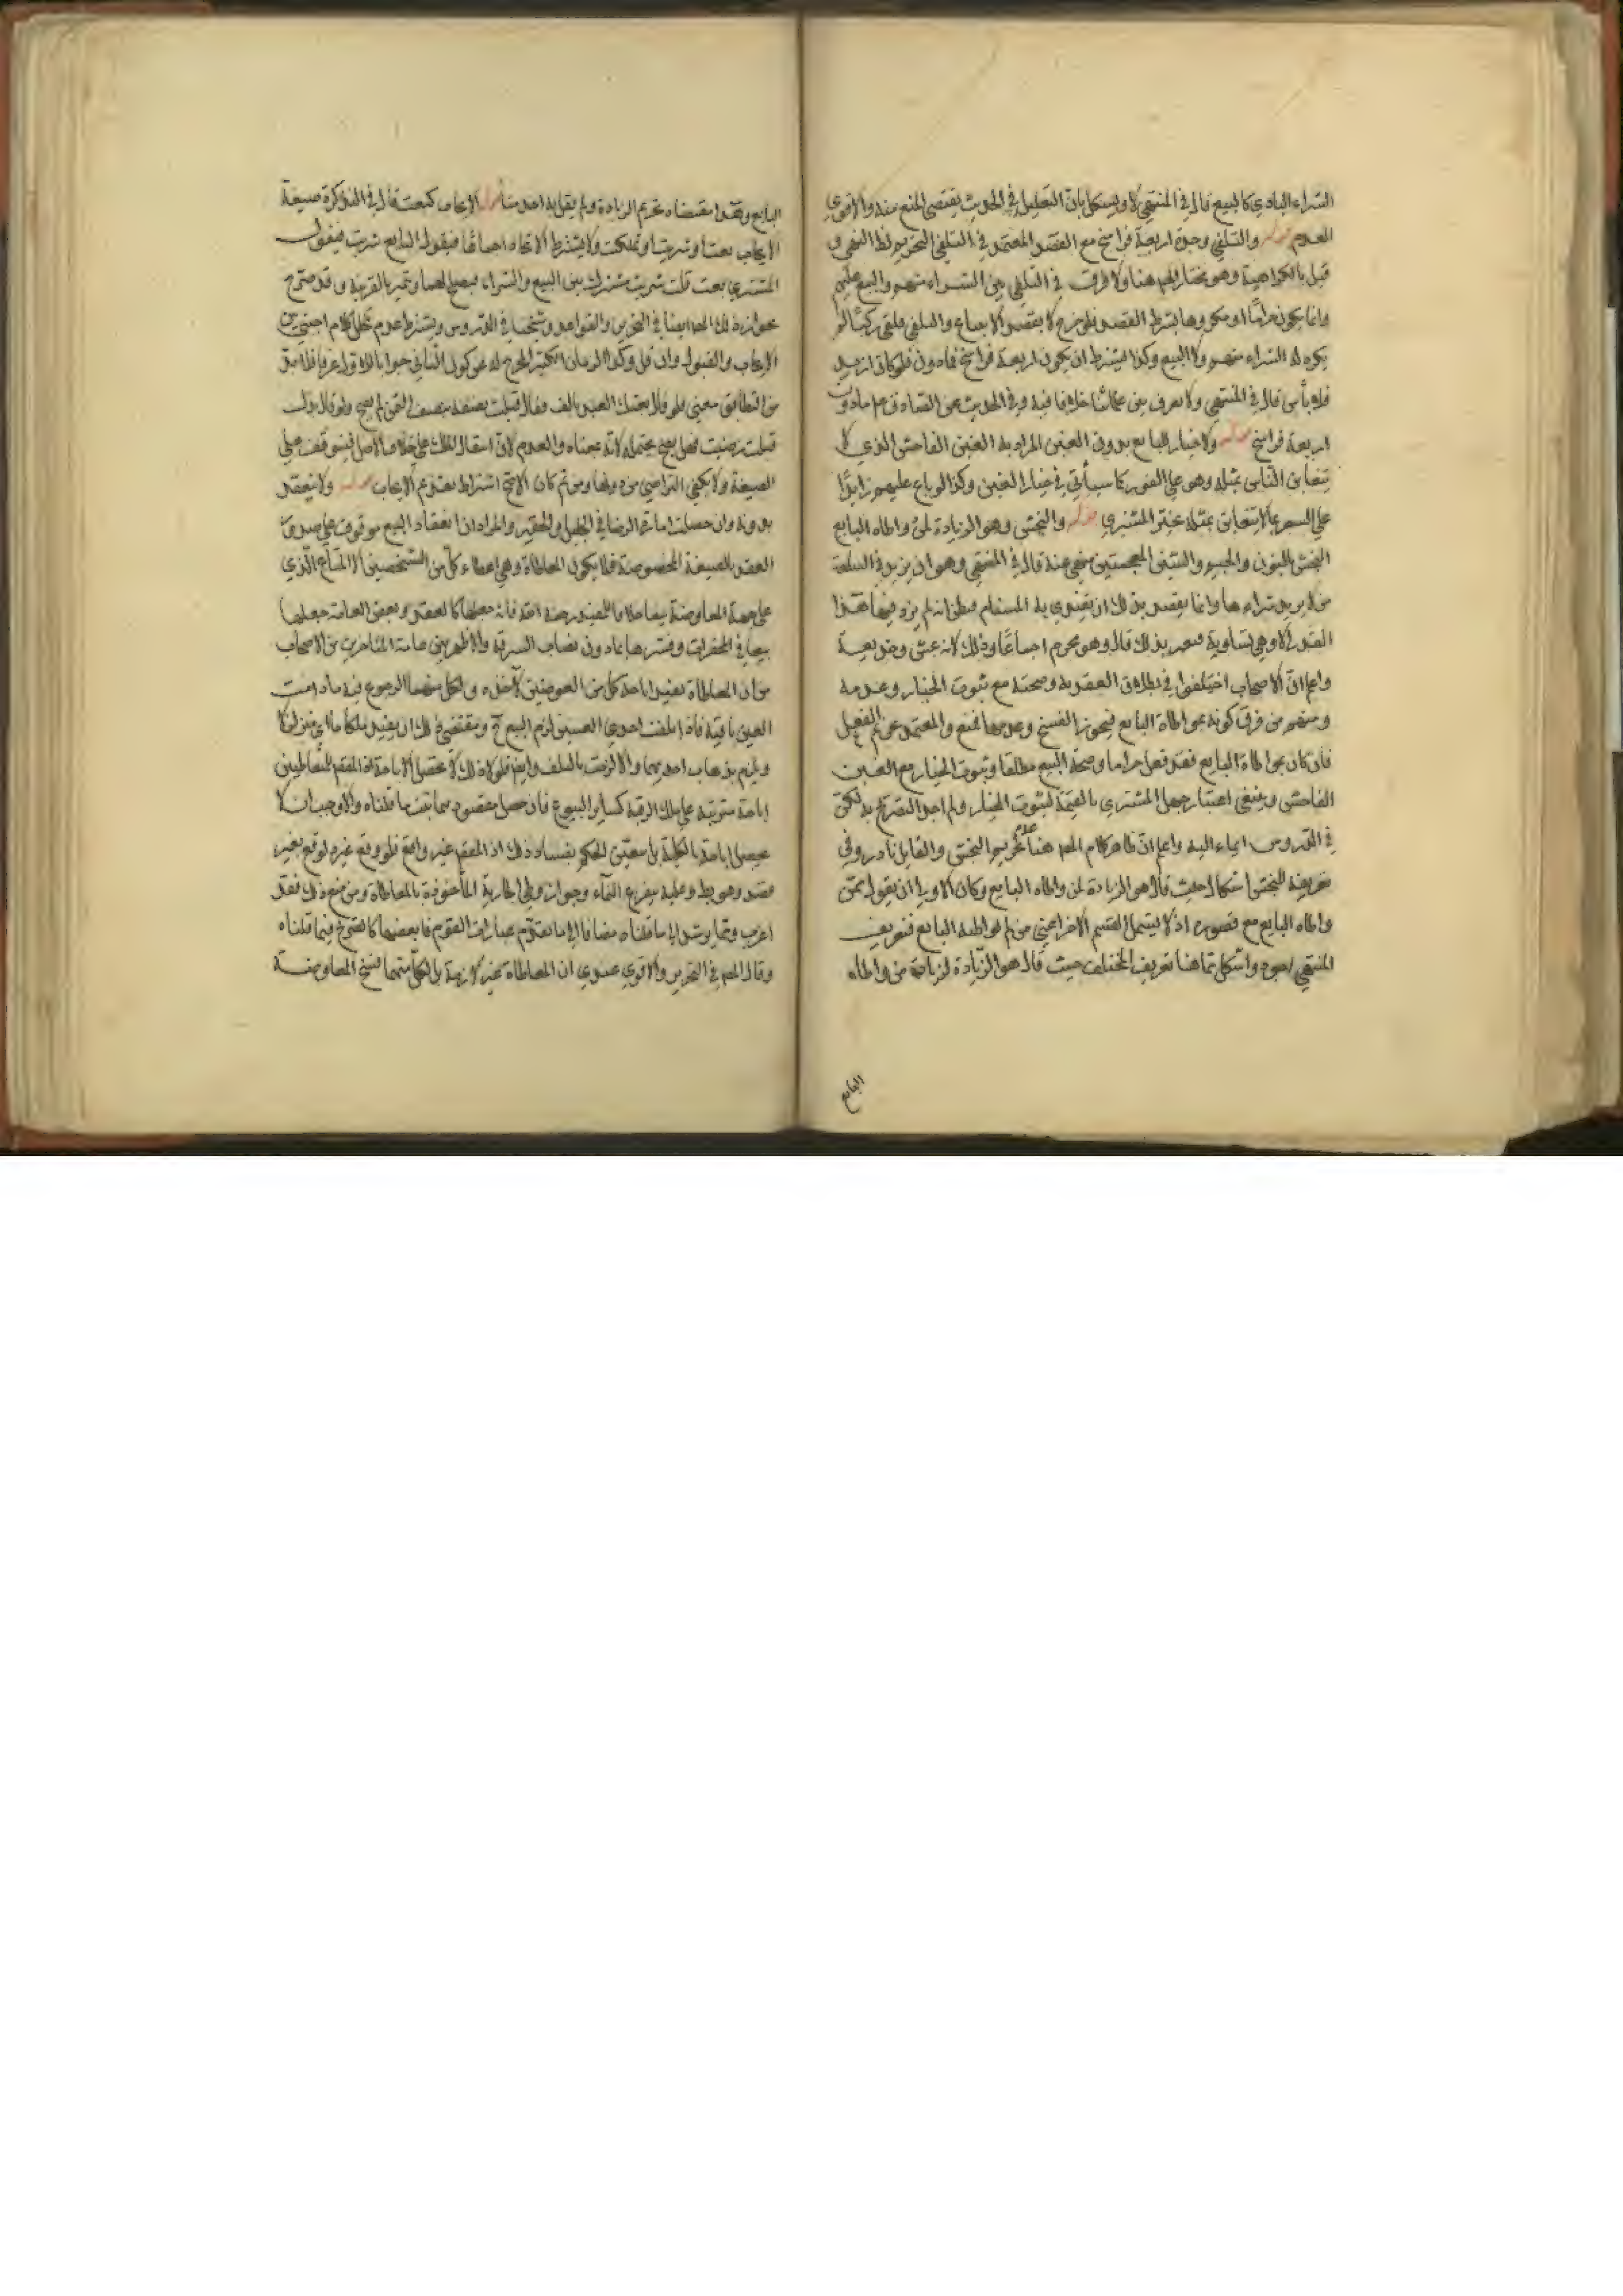 الشراء للبادي كالبيع قال في المنتهى لا ويشكل بان التعليل في الحديث يقتضي المنع منه والاقوى
العدم قوله والتلقي وحده اربعة فراسخ مع القصد المعتمد في التلقي التحريم لظ النهي و
قيل بالكراهية وهو مختار المص هنا ولا فرق في التلقي بين الشراء منهم والبيع عليهم
وانما يكون حراما او مكروها بشرط القصد فلو خرج لا بقصد الابتياع والتلقي فلقي ركبا لم
يكره له الشراء منهم ولا البيع وكذا يشترط ان يكون اربعة فراسخ فما دون فلو كان ازيد
فلا بأس قال في المنتهى ولا نعرف بين علمائنا خلافا فيه وفي الحديث عن الصادق ع م ما دون
اربعة فراسخ قوله ولا خيار للبايع بدون الغبن المراد به الغبن الفاحش الذي لا
يتغابن الناس بمثله وهو على الفور كما سيأتي في خيار الغبن وكذا لو باع عليهم زايدا
على السعر بما لا يتغابن بمثله تخير المشتري قوله والنجش وهو الزيادة لمن واطاه البايع
النجش بالنون والجيم والشين المعجمتين منهي عنه قال في المنتهى وهو ان يزيد في السلعة
من لا يريد شراءها وانما يقصد بذلك ان يقتدي به المستام فيظن انه لم يزد فيها هذا
القدر الا وهي تساويه فيغتر بذلك قال وهو محرم اجماعا وذلك لانه غش وخديعة
واعلم ان الاصحاب اختلفوا في بطلان العقد به وصحته مع ثبوت الخيار وعدمه
ومنهم من فرق كونه بمواطاة البايع فيجوز الفسخ وعدمها فمنع والمعتمد
فان كان بمواطاة البايع فقد فعل حراما وصحة البيع مطلقا وثبوت الخيار مع الغبن
الفاحش وينبغي اعتبار جهل المشتري بالقيمة لثبوت الخيار ولم اجد التصريح به لكن
في الدروس ايماء اليه واعلم ان ظاهر كلام المص هنا عدم تحريم النجش والقايل نادر وفي
تعريفه للنجش اشكال حيث قال هو الزيادة لمن واطاه البايع وكان الاولى ان يقول ممن
واطاه البايع مع قصوره اذ لا يشمل القسم الاخر اعني من لم يواطئه البايع فتعريف
المنتهى اجود واشكل مما هنا تعريف المختلف حيث قال هو الزيادة لزيادة من واطاه
البايع
البايع مقتضاه تحريم الزيادة ولم يقل به احد منا قوله الايجاب كبعت قال في التذكرة صيغة
الايجاب بعت او شريت او ملكت ولا يشترط الاتحاد اجماعا فيقول البايع شريت فيقول
المشتري بعت قلت شريت مشترك بين البيع والشراء فيصح لهما ويتميز بالقرينة وقد صرح
بجواز ذلك المص ايضا في التحرير والقواعد وشيخنا في الدروس ويشترط عدم تخلل كلام اجنبي بين
الايجاب والقبول وان قل وكذا الزمان الكثير المخرج له عن كون الثاني جوابا للاول عرفا
من التطابق معنى فلو قال بعتك العبد بالف فقال قبلت نصفه بنصف الثمن لم يصح ولو قال بدل
قبلت رضيت فهل يصح يحتمله لانه بمعناه والعدم لان انتقال الملك على خلاف الاصل فيتوقف على
الصيغة ولا يكفي التراضي من دونها ومن ثم كان الاصح اشتراط تقديم الايجاب قوله ولا ينعقد
بدونه وان حصلت امارة الرضا في الجليل والحقير والمراد ان انعقاد البيع موقوف على صدور
العقد بالصيغة المخصوصة فلا يكون المعاطاة وهي اعطاء كل من الشخصين الاخر المتاع الذي
على جهة المعاوضة بيعا خلافا للمفيد رحمه الله فانه جعلها كالعقد وبعض العامة جعلها
بيعا في المحقرات وفسرها بما دون نصاب السرقة والاظهر بين عامة المتاخرين من الاصحاب
من ان المعاطاة تفيد اباحة كل من العوضين لآخذه ولكل منهما الرجوع فيه ما دامت
العين باقية فاذا تلفت احدى العينين لزم البيع ح ومقتضى ذلك ان يفيد ملكا متزلزلا
ويلزم بذهاب احديهما والا لزمت بالتلف وايضا فلولا ذلك لا تحصل الاباحة اذ المقصد للمتعاطيين
اباحة مترتبة على ملك الرقبة كساير البيوع فان حصل مقصودهما ثبت ما قلناه والا وجب ان لا
يحصل اباحة بالكلية بل يتعين الحكم بفساد ذلك اذ المقصد غير واقع فلو وقع غيره لوقع بغير
قصد وهو بط وعليه يتفرع النماء وجواز وطي الجارية المأخوذة بالمعاطاة ومن منع ذلك فقد
اغرب ومما يرشد الى ما قلناه مضافا الى ما تقدم عبارات القوم فان بعضها كالصريح فيما قلناه
وقال المص في التحرير والاقوى عندي ان المعاطاة غير لازمة بل لكل منهما فسخ المعاوضة